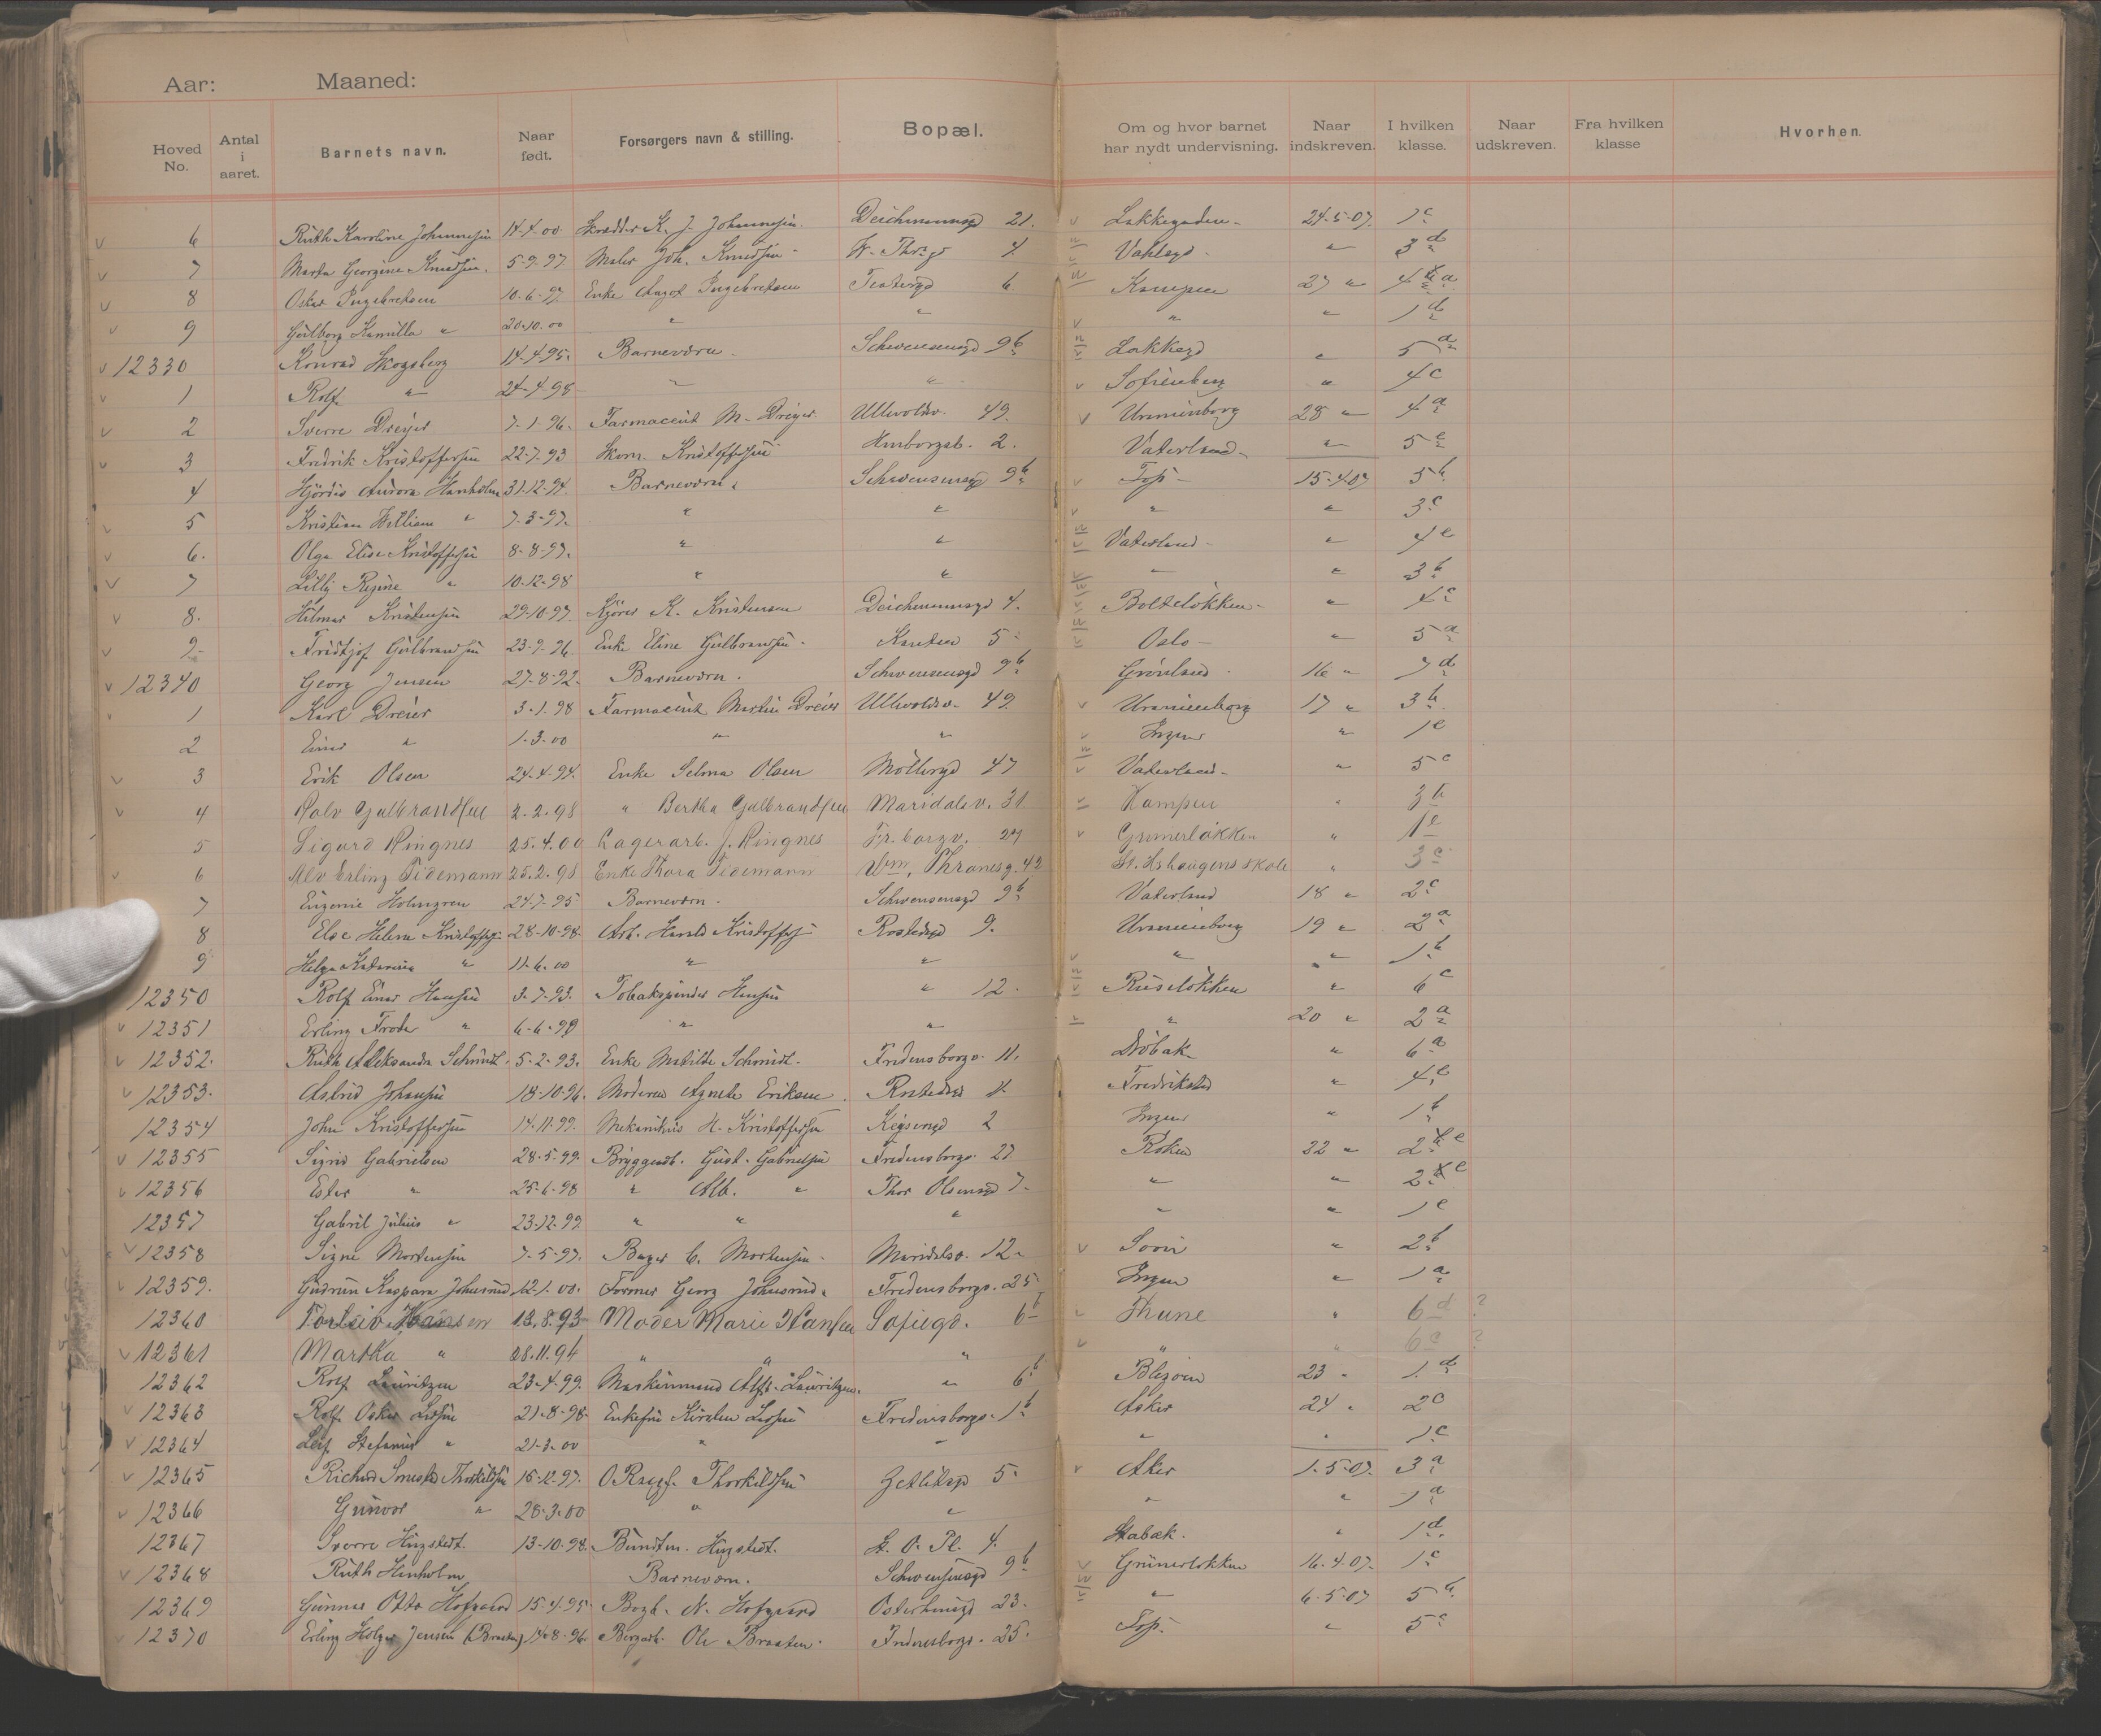 Aar: Maaned:
Hoved No. Antal i aaret. Barnets navn. Naar født. Forsørgers navn & stilling. Bopæl. Om og hvor barnet har nydt undervisning. Naar indskreven. I hvilken klasse. Naar udskreven. Fra hvilken klasse Hvorhen.
6 Ruth Karoline Johannesen 14-4-00 Skrædder K. J. Johannesen Deichmannsgd 21. Lakkegaden 24-5-07. 1c
7 Marta Georgine Knudsen 5-9-97 Maler Joh. Knudsen W. Thr.gd 4 Vahlsgd " 3d
8 Oskar Ingebretsen 10-6-97 Enke Aagot Ingebretsen Teatergd 6 Kampen 27 " 4 a
9 Gulborg Kamilla " 20-10-00 " " " " 1d
12330 Konrad Skogsberg 14-4-95 Barneværn Schwensensgd 9b Lakkegd " 5a
1 Rolf " 24-4-98 " " Sofienberg " 4c
2 Sverre Dreyer 7-1-96. Farmaceut M. Dreyer Ullevoldsv. 49. Uranienborg 28 " 4a
3 Fredrik Kristoffersen 22-7-93 Skom. Kristoffersen 2. Vaterland " 5c
4 Hjördis Aurora Hanholm 31-12-94. Barneværn Schwensensgd 9b Fos 15-4-07 5b
5 Kristian William " 7-3-97. " " " " 3c
6. Olga Elise Kristoffersen 8-8-97. " " Vaterland " 4c
7 Lilly Regine " 10-12-98 " " " " 3b
8. Hilmar Kristensen 29-10-97 Kjörer K. Kristensen Deichmannsgd 4. Bolteløkken " 4c
9 Fridtjof Gulbrandsen 23-9-96 Enke Eline Gulbrandsen Kanten 5 Oslo " 5a
12340 Georg Jensen 27-8-92 Barneværn. Schwensensgd 9b Grønland 16 " 7d
1 Karl Dreier 3-1-98 Farmaceut Martin Dreier Ullevoldsv. 49 Uranienborg 17 " 3b
2 Einar " 1-3-00 " " Ingen " 1e
3 Erik Olsen 24-4-94. Enke Selma Olsen Møllergd 47 Vaterland " 5c
4 Halv Gulbrandsen 2.2.98 " Bertha Gulbrandsen Maridalsv. 31 Kampen " 3b
5 Sigurd Ringnes 25.4.00 Lagerarb. J. Ringnes Fr.borgv. 27 Grunerløkken " 1e
6 Alv Erling Tidemann 25.2.98 Enke Thora Tidemann Wm. Thranesg. 42 St. Hshaugens skole " 3c
7 Eugenie Holmgren 24-7-95 Barneværn. Schwensensgd 9b Vaterland 18 " 2c
8 Else Helene Kristoffs. 28-10-98 Arb. Harald Kristoffs. Rostedsgd 9. Uranienborg 19 " 2a
9 Helga Katarina " 11-6-00 " " " " 1b
12350 Rolf Einar Hansen 3-7-93. Tobakspinder Hansen " 12 Ruseløkken " 6c
12351 Erling Frode " 6-6-99 " " " 20 " 2a
12352. Ruth Aleksandra Schmidt 5-2-93. Enke Matilde Schmidt. Fredensborgv. 11. Drøbak " 6a
12353. Astrid Johansen 18-10-96. Moderen Agnete Eriksen Rostedsgd 11 Fredrikstad " 4e
12354 John Kristoffersen 14-11-99. Mekanikus H. Kristoffersen Keysersgd 2 Ingen " 1b
12355 Sigrid Gabrielsen 28-5-99. Bryggearb. Gust. Gabrielsen Fredensborgv. 27. Røken 22 " 2 e
12356 Ester " 25-6-98 " Alb. " Thor Olsensgd 7 " " 2 e
12357 Gabriel Julius " 23-12-99 " " " " " 1e
12358 Signe Mortensen 7-5-97. Bager C. Mortensen Maridalsv. 12 " 2b
12359. Gudrun Kaspara Johnsrud 12-1-00. Former Georg Johnsrud Fredensborgv. 25 Ingen " 1a
12360 Torleiv Hansen 13.8.93 Moder Marie Hansen Sofiegd. 6b Thune " 6d ?
12361 Martha " 28.11.94 " " " " " 6c ?
12362 Rolf Lauritzen 23-4-99. Maskinmand Alfr. Lauritzen " 6b 23 " 1d
12363 Rolf Oskar Larsen 21-8-98 Enkefru Kirsten Larsen Fredensborgv. 1b Asker 24 " 2c
12364 Leif Stefanus " 21-3-00 " " " " 1c
12365 Richard Thorkildsen 16-12-97. Thorkildsen Zetlitzgd 5 Aker 1-5-07. 3a
12366 Gunvor " 28-3-00 " " " " 1a
12367 Sverre Hugstedt 13-10-98. Bundtm. Hugstedt. St. O. Pl. 4. Stabæk. " 1d
12368 Ruth Hanholm Barneværn. Schwensensgd 9b Grünerløkken 16-4-07. 1c
12369 Gunnar Otto Hofgaard 15-4-95 Bogh. N. Hofgaard Osterhausgd 23. " 6-5-07 5b
12370 Erling Holger Jensen (Braaten) 14-8-96. Ole Braaten Fredensborgv. 25. Fos. " 5c